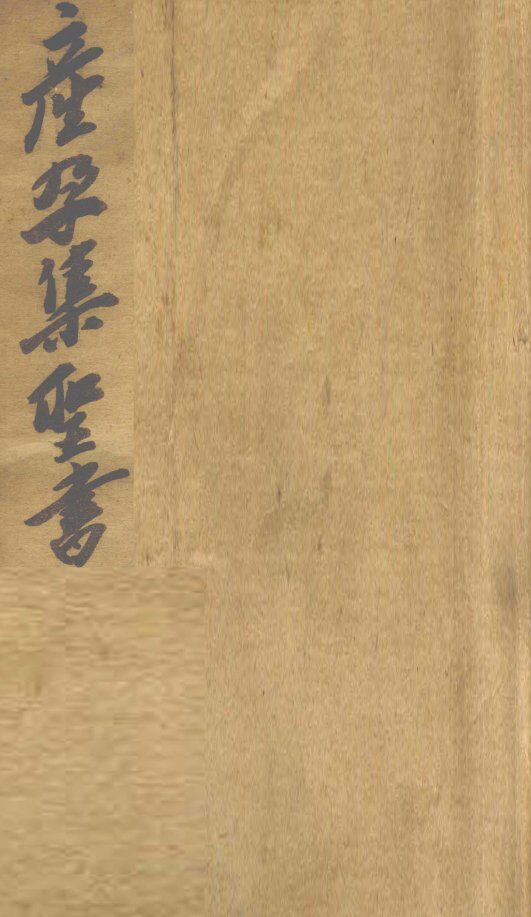 産孕集聖書